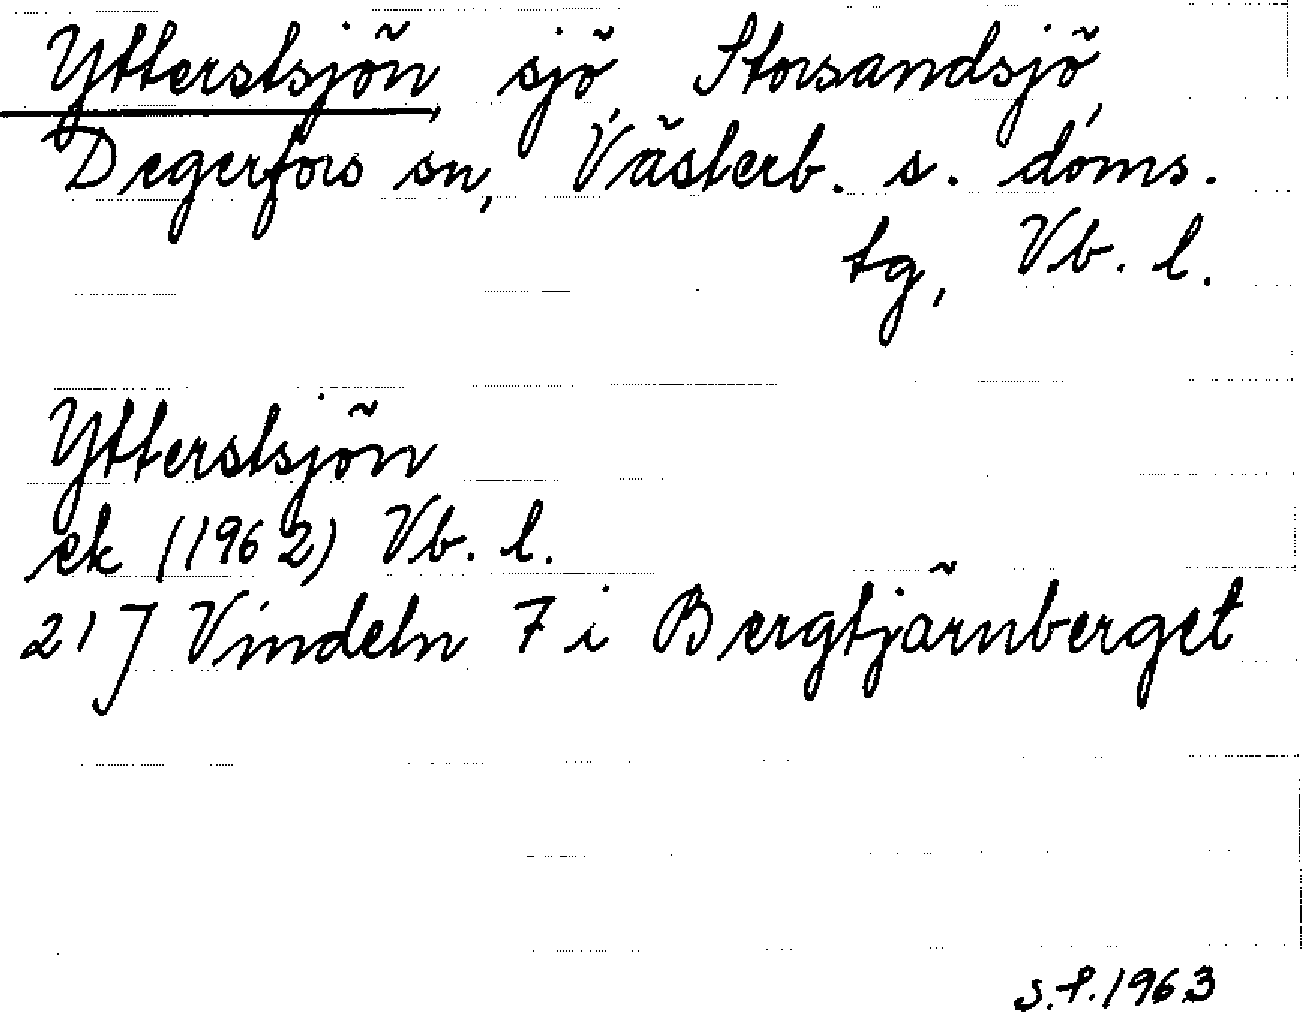 Ytterstsjön, sjö, Storsandsjö,
Degerfors sn, Västerb. s. doms.
tg, Vb. l.
Ytterstsjön
ek (1962) Vb. l.
21J Vindeln 7 i Bergtjärnberget
S.f. 1963